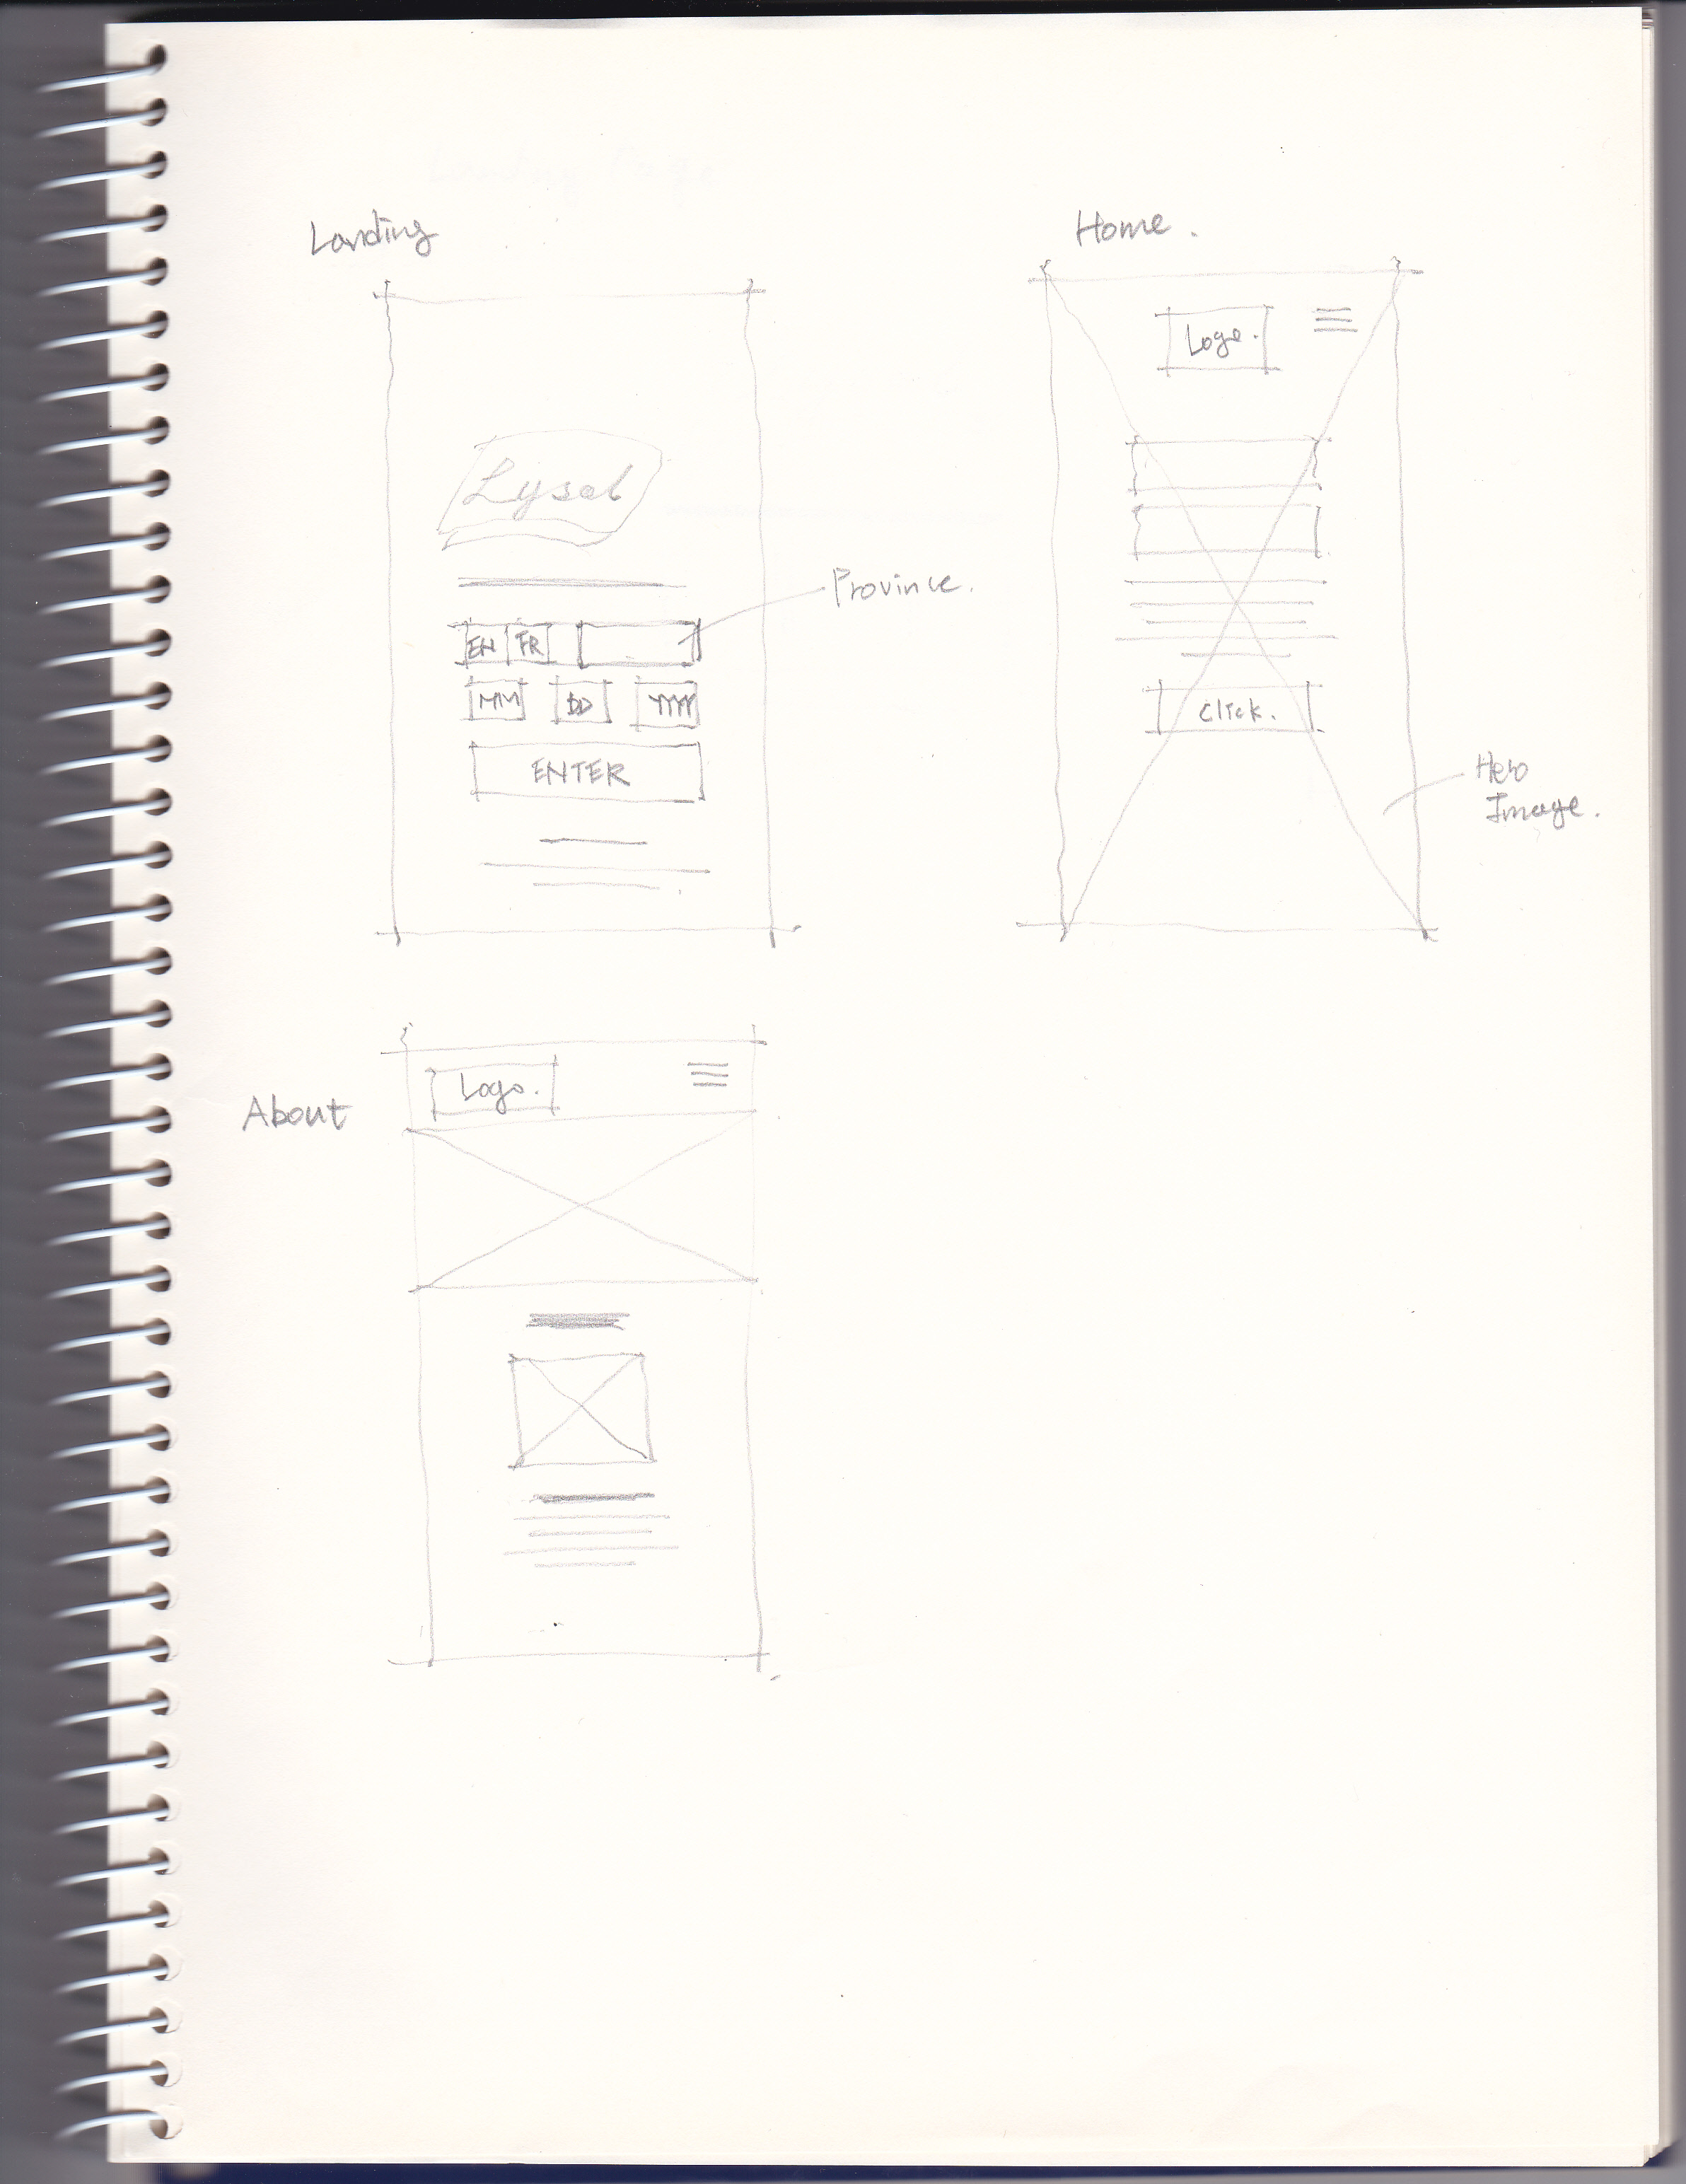 Landing
Lysol
EN FR
Province.
MM DD YYYY
ENTER
Home.
Logo.
Click.
Hero
Image.
About
Logo.